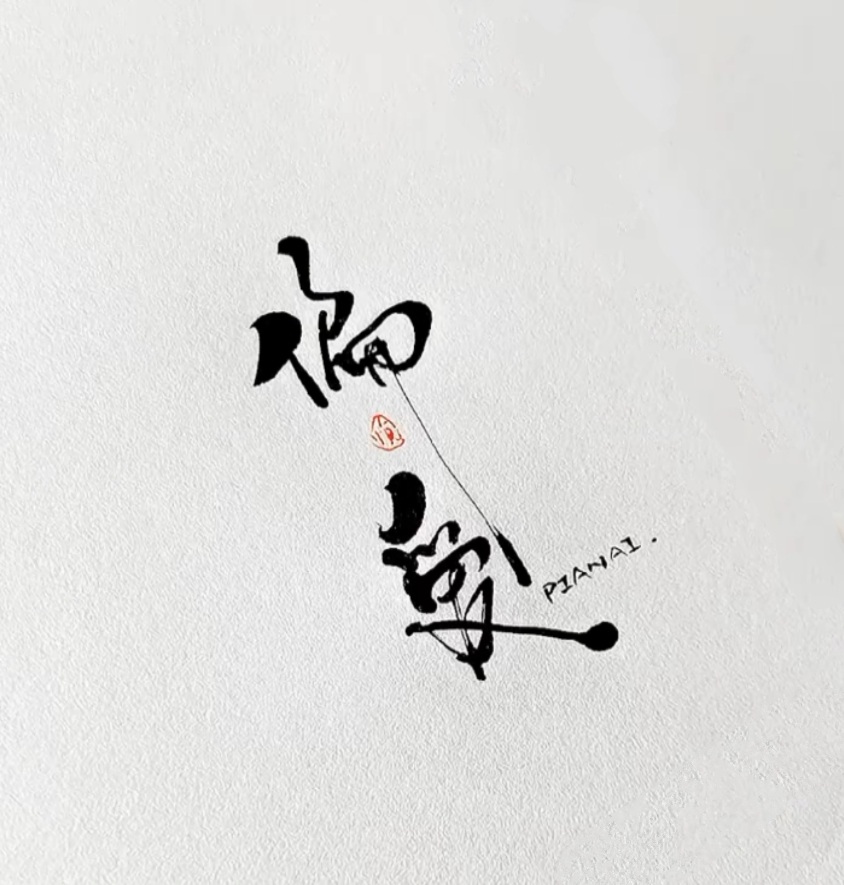 偏
爱
PIANAI.